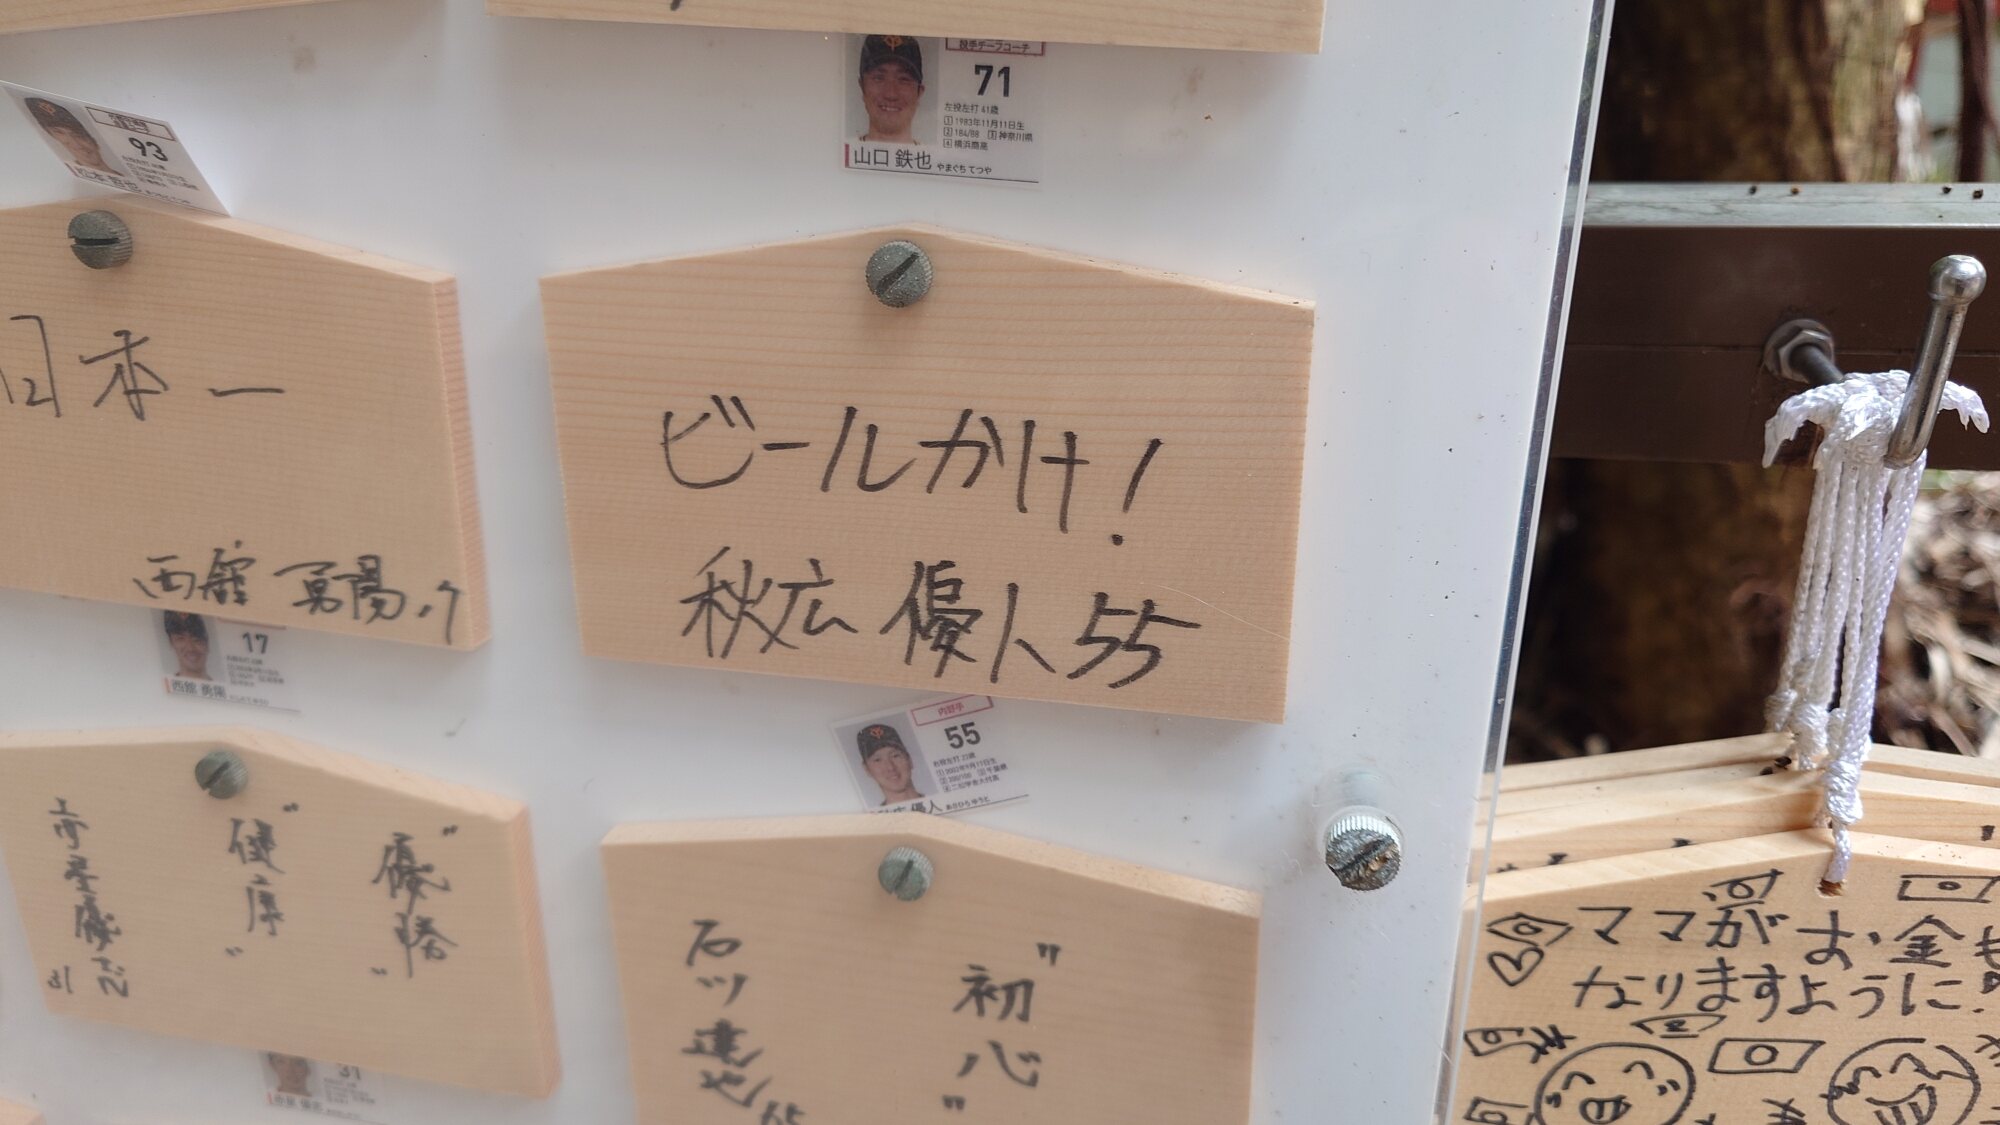 投手チーフコーチ
71
左投左打 41歳
①1983年11月11日生
②184/88 ③神奈川県
④横浜商高
山口 鉄也 やまぐち てつや
93
松本 哲也
日本一
西舘 勇陽 17
17
西舘 勇陽
ビールかけ!
秋広 優人 55
内野手
55
右投左打 22歳
①2002年9月17日生
②200/100 ③千葉県
④二松学舎大付高
秋広 優人 あきひろ ゆうと
"優勝"
"健康"
赤星優志
31
31
赤星 優志
"初心"
石川達也 65
ママがお金も
なりますように!